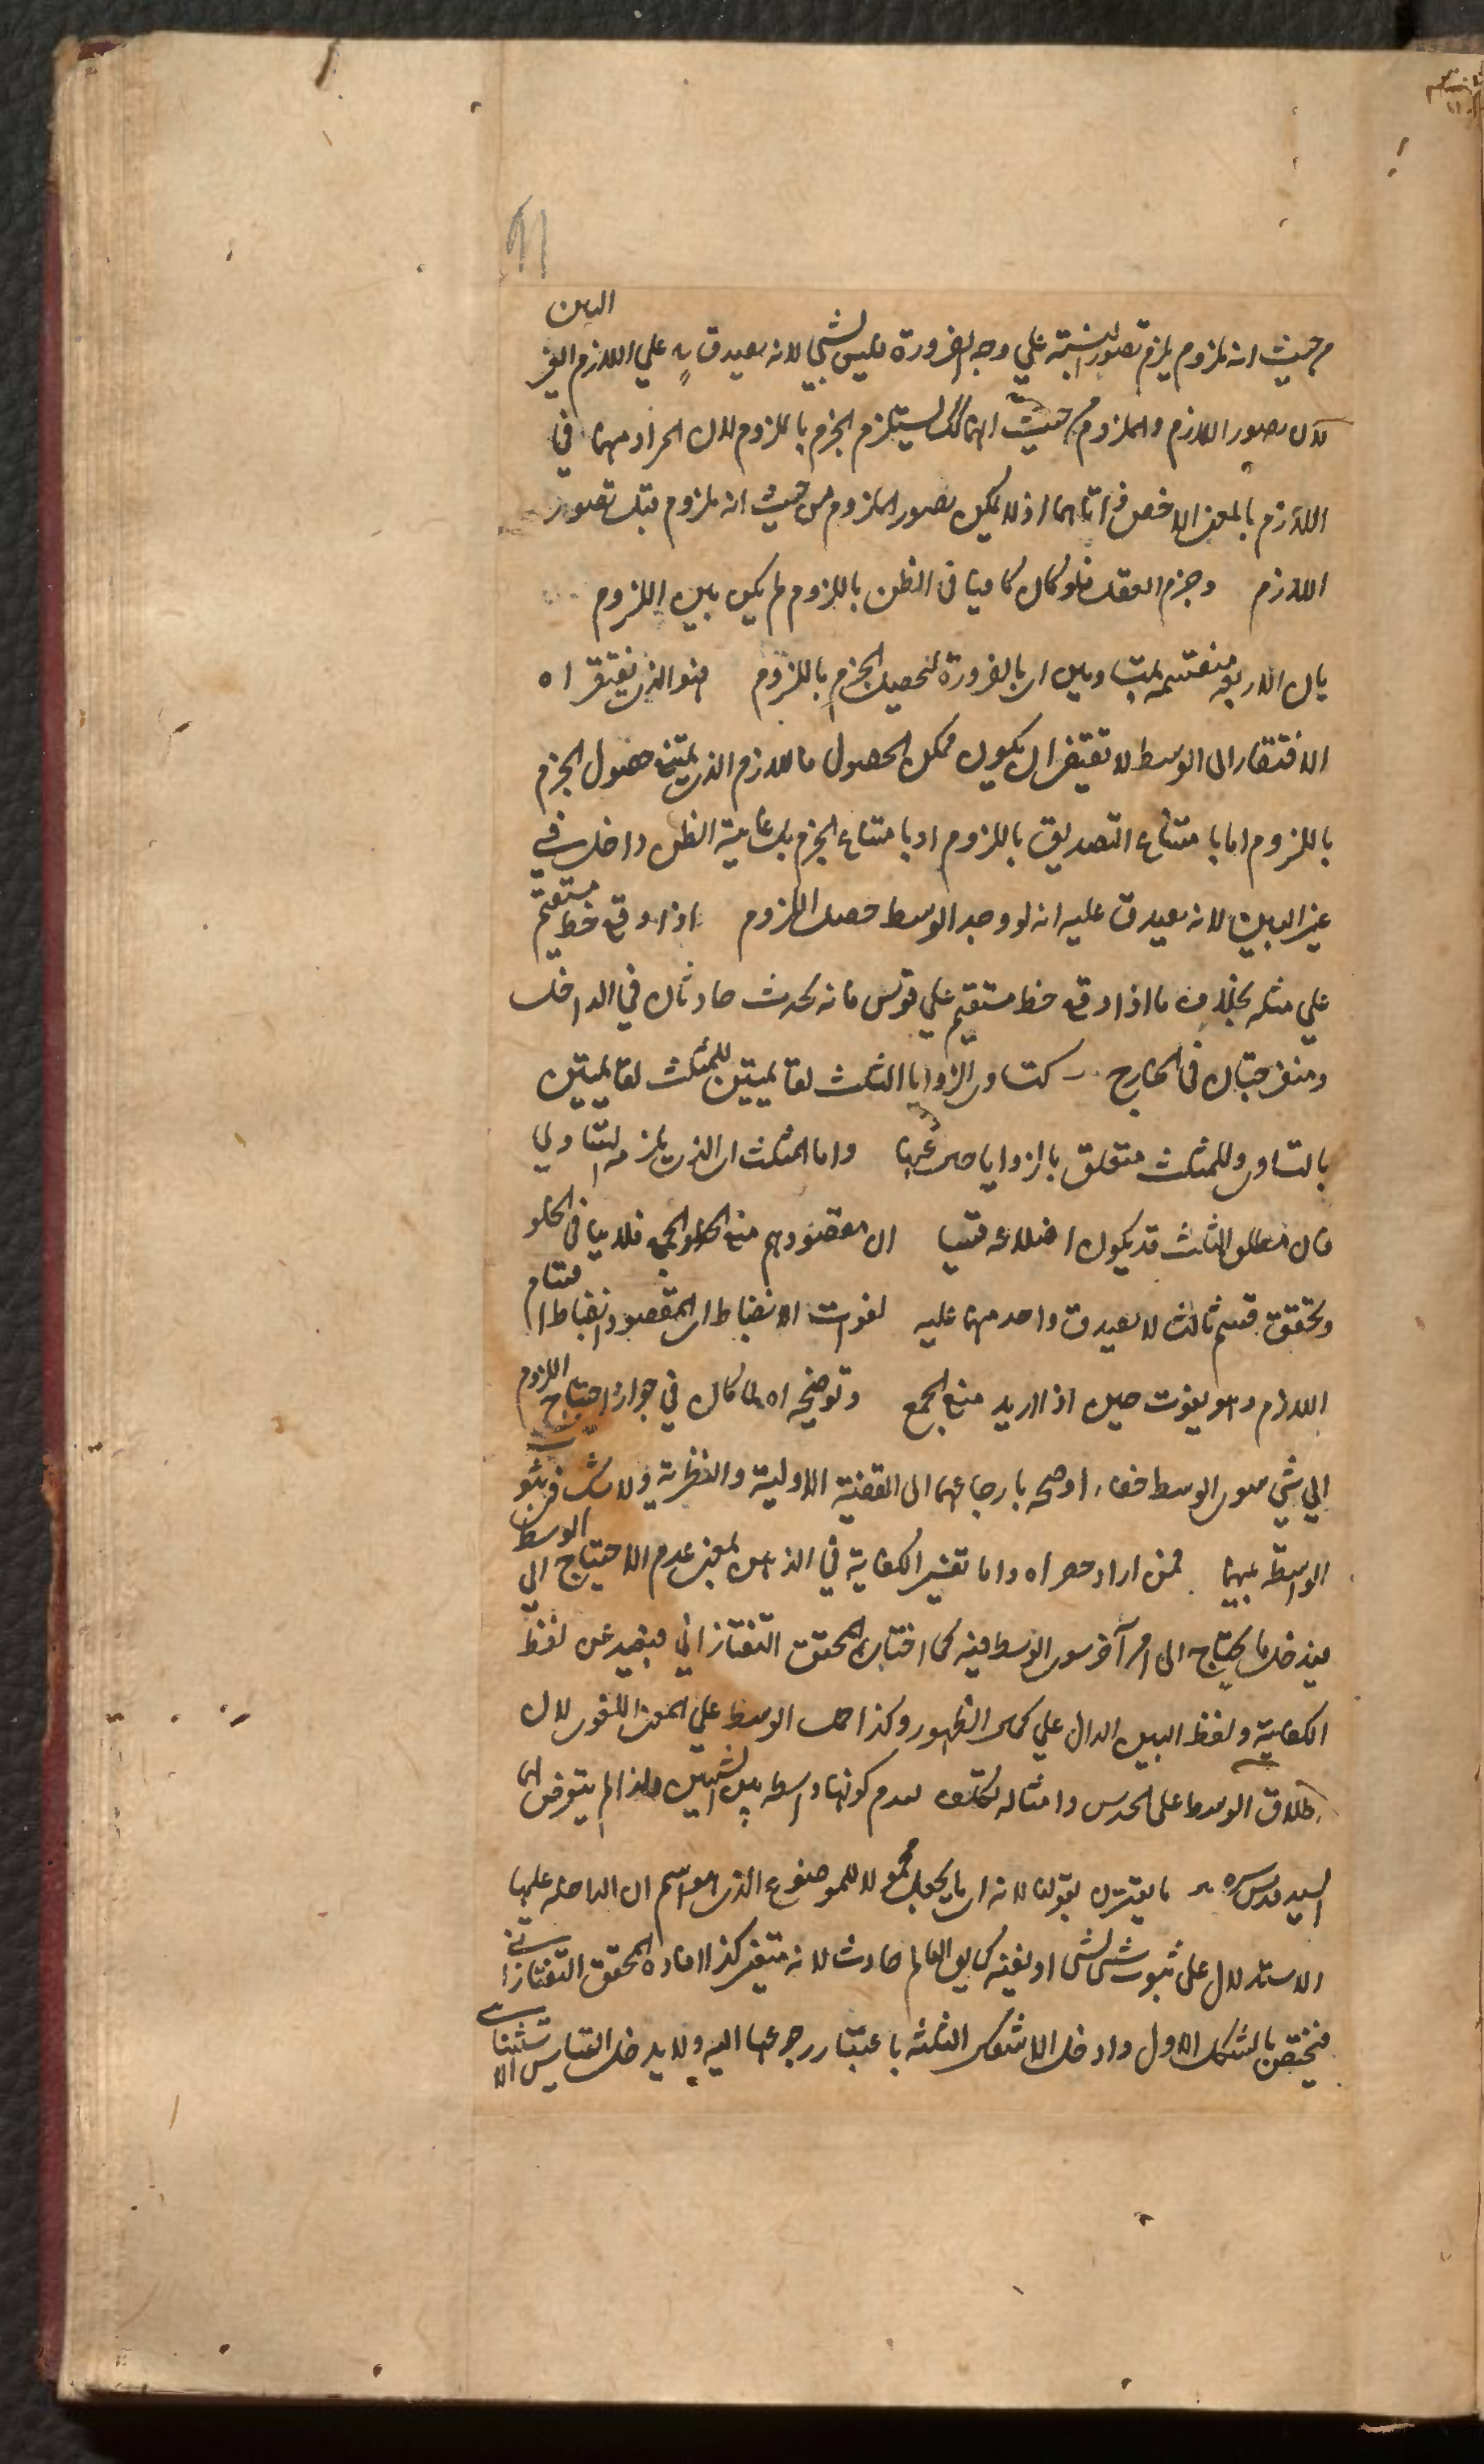 من حيث انه ملزوم يلزم تصور النسبة علي وجه الضرورة فليس بشي لانه يصدق علي اللازم الغير البين
لان تصور اللازم والملزوم من حيث انهما كك يستلزم الجزم باللزوم لان المراد منهما في
اللازم بالمعني الاخص ذاتاهما اذ لا يمكن تصور الملزوم من حيث انه ملزوم قبل تصور
اللازم وجزم العقل فلو كان كافيا في الظن باللزوم لم يكن بين اللزوم
بان الاربعة منقسمة بمتساويين اي بالضرورة لتحصيل الجزم باللزوم فهو الذي يفتقر اه
الافتقار الي الوسط لا تقتضي ان يكون ممكن الحصول فاللازم الذي يمتنع حصول الجزم
باللزوم اما بامتناع التصديق باللزوم او بامتناع الجزم بل غايته الظن داخل في
غير البين لانه يصدق عليه انه لو وجد الوسط حصل اللزوم اذا وقع خط مستقيم
علي مثله بخلاف ما اذا وقع خط مستقيم علي قوس فانه يحدث حادتان في الداخل
ومنفرجتان في الخارج كتساوي الزوايا الثلث لقائمتين للمثلث لقائمتين
بالتساوي وللمثلث متعلق بالزوايا
واما المثلث اي الذي يلزمه التساوي
فان مطلق المثلث قد يكون اضلاعه قسيا ان مقصودهم منع الخلو والجمع فلا ينافي الخلو
وتحقق قسم ثالث لا يصدق واحد منهما عليه لفوات الانضباط اي المقصود انضباط اقسام
اللازم وهو يفوت حين اذا اريد منع الجمع وتوضيحه اه لما كان في جواز احتياج اللزوم
الي شي سوي الوسط خفاء اوضحه بارجاعهما الي القضية الاولية والنظرية ولا شك في ثبوت
الواسطة بينهما فمن اراد حصر اه واما تفسير الكفاية في الذهن بمعني عدم الاحتياج الي الوسط
فيدخل ما يحتاج الي امر آخر سوي الوسط فيه كما اختاره المحقق التفتازاني فبعيد عن لفظ
الكفاية ولفظ البين الدال علي كمال الظهور وكذا حمل الوسط علي المعني اللغوي لان
اطلاق الوسط علي الحدس وامثاله تكلف لعدم كونها واسطة بين الشيئين ولذا لم يتعرض لهما
السيد قدس سره ما يقترن بقولنا لانه اي ما يجعل محمولا للموضوع الذي هو اسم ان الداخلة عليها
الاستدلال علي ثبوت شي لشي او نفيه كما يق العالم حادث لانه متغير كذا افاده المحقق التفتازاني
فيختص بالشكل الاول وادخل الاشكال الثلثة باعتبار رجوعها اليه ولا يدخل القياس الاستثنائي